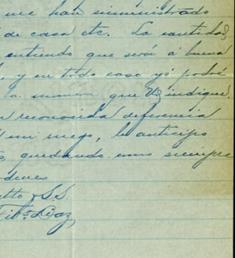 me han suministrado
de casa etc. La cantidad
entiendo que será a buena
y en todo caso yo podré
la manera que Vd indique.
reconocida deferencia
mi ruego, le anticipo
quedando como siempre
S.S.